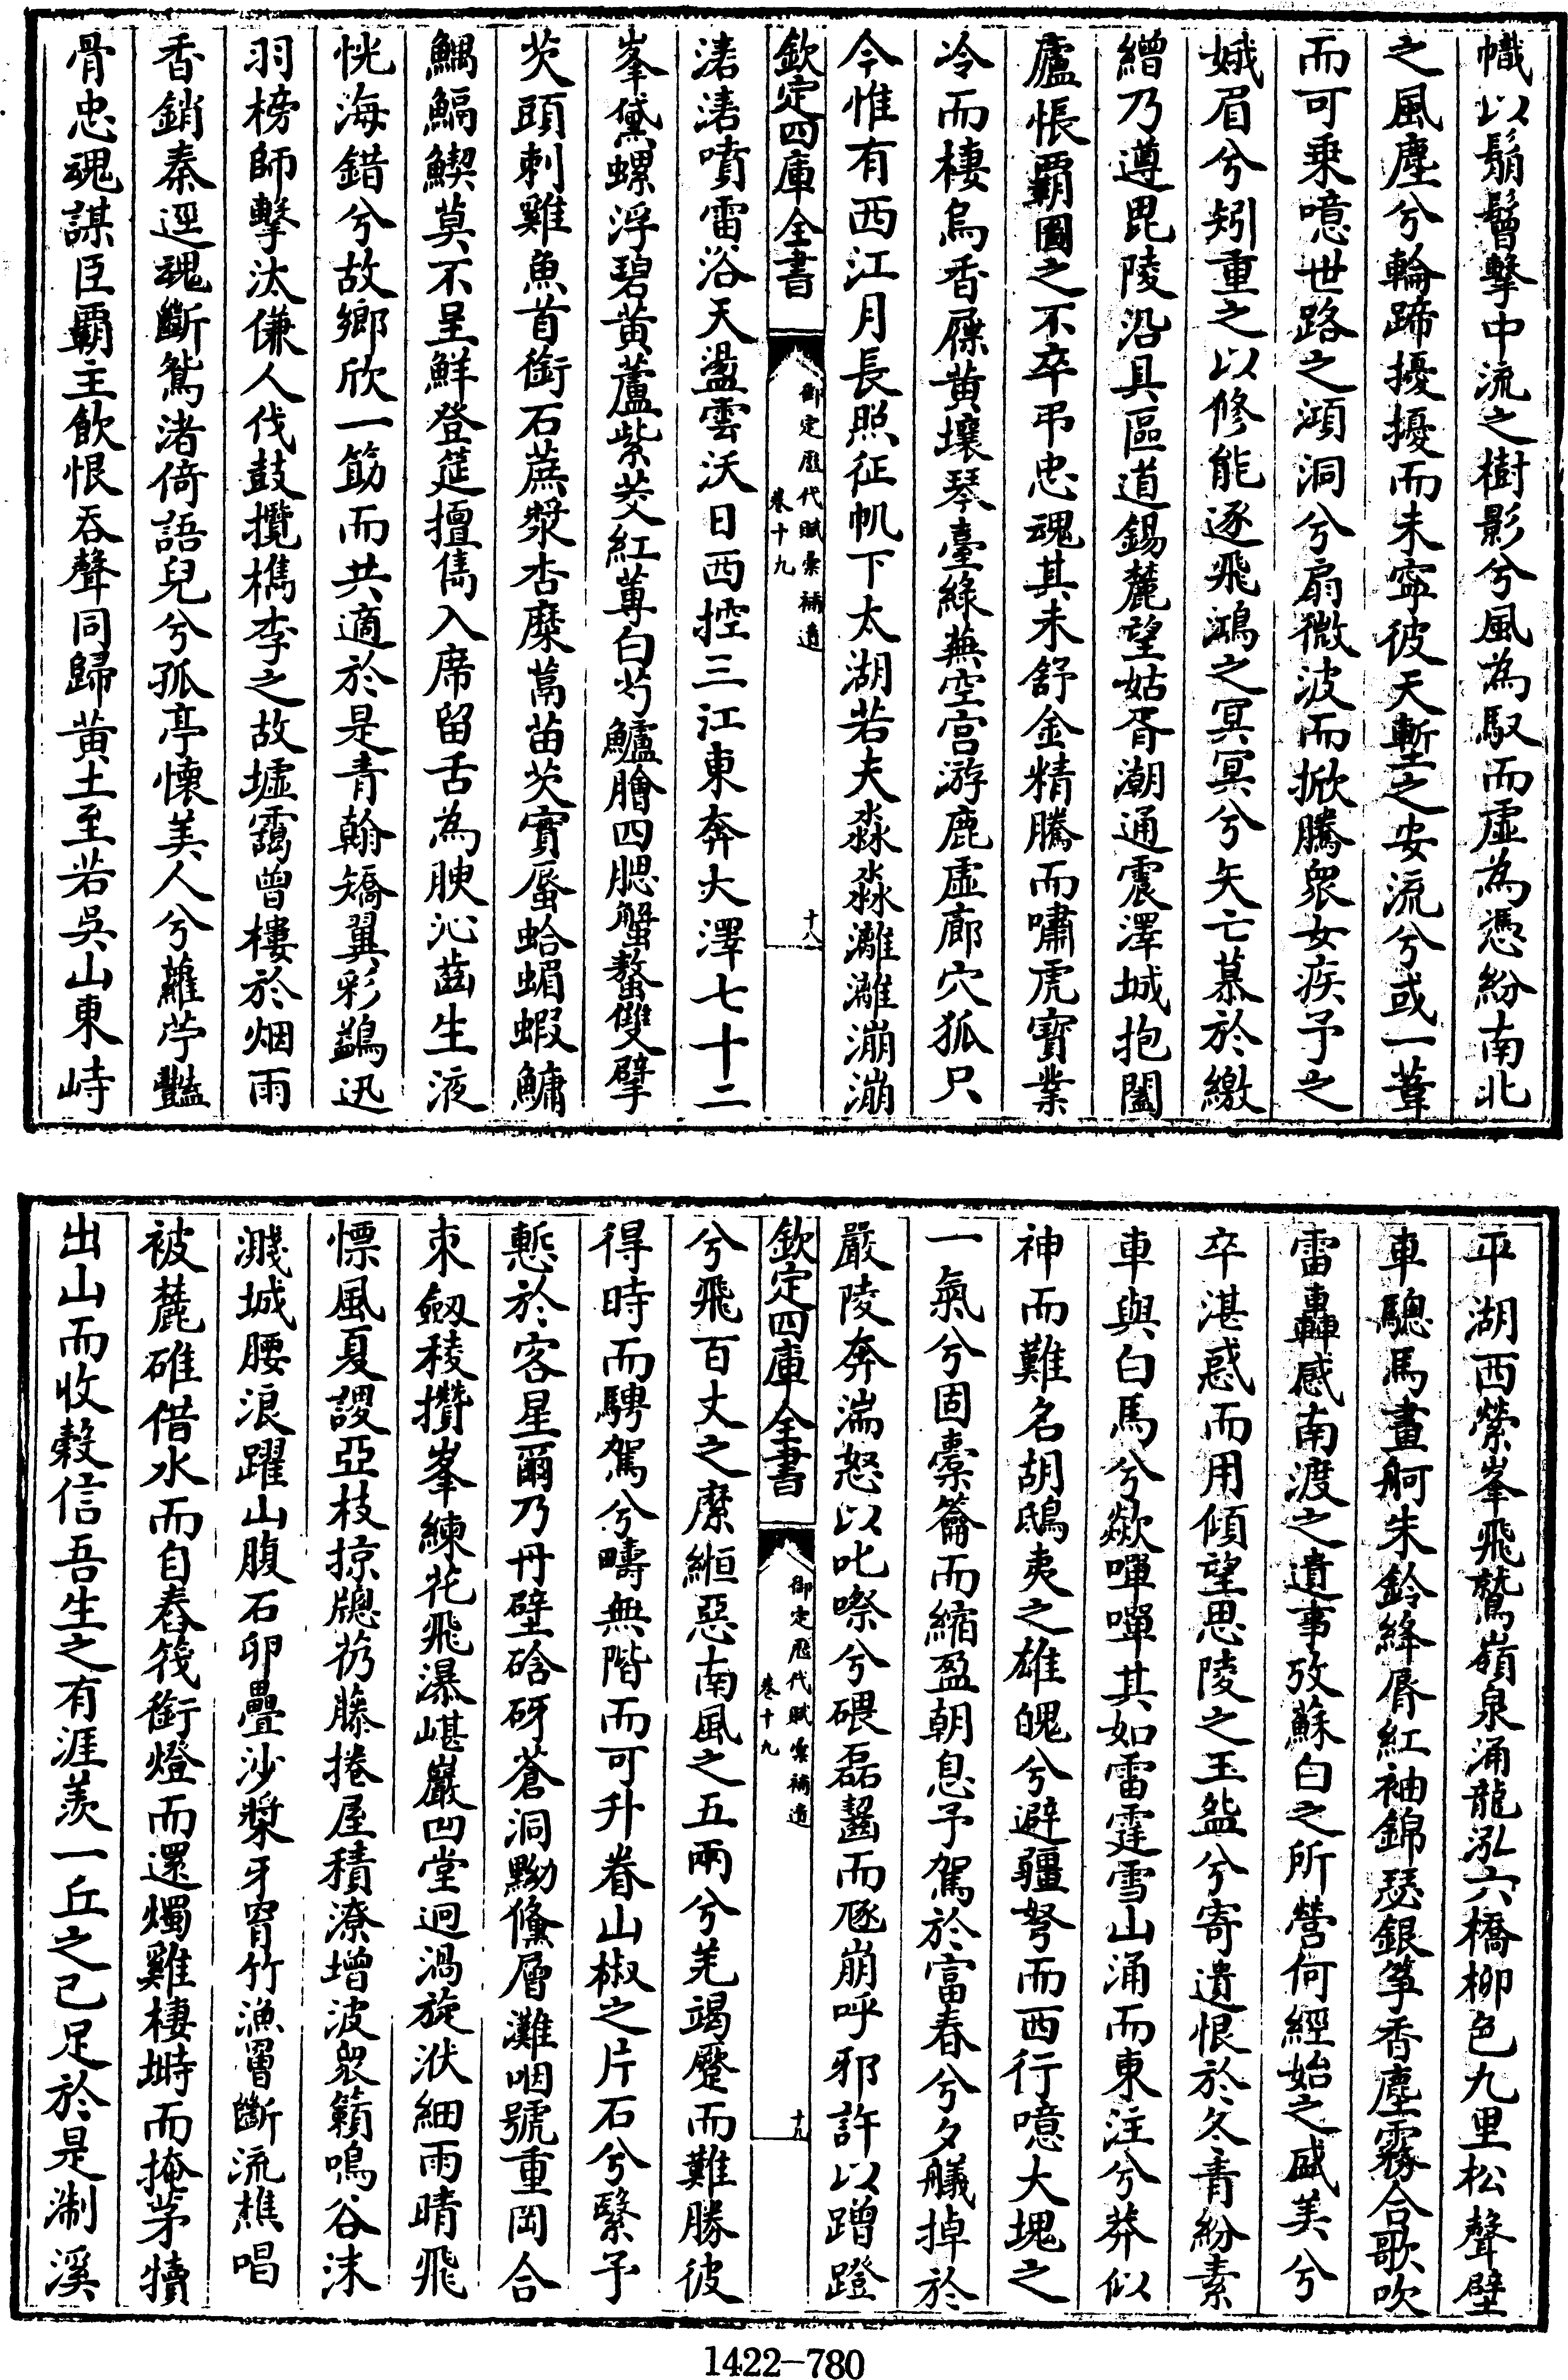 幟以鬅鬙擊中流之樹影兮風為馭而虛為憑紛南北
之風塵兮輪蹄擾擾而未寧彼天塹之安流兮或一葦
而可乗噫世路之澒洞兮扇微波而掀騰衆女疾予之
娥眉兮矧重之以修能逐飛鴻之冥冥兮矢亡慕於繳
繒乃遵毘陵沿具區道錫麓望姑胥潮通震澤城抱闔
廬悵霸圖之不卒弔忠魂其未舒金精騰而嘯虎寳業
冷而棲烏香屧黄壤琴臺綠蕪空宫游鹿虛廊穴狐只
今惟有西江月長照征帆下太湖若夫淼淼灕灕漰漰
欽定四庫全書
御定厯代賦彙補遺
卷十九
十八
濤濤噴雷浴天盪雲沃日西控三江東奔大澤七十二
峯黛螺浮碧黄蘆紫茭紅蓴白芍鱸膾四腮蟹螯雙擘
芡頭刺雞魚首銜石蔗漿杏糜蒿苗芡實蜃蛤蝐蝦鱅
鰅鰝鰥莫不呈鮮登筵擅雋入席留舌為腴沁齒生液
恍海錯兮故鄉欣一筯而共適於是青翰矯翼彩鷁迅
羽榜師擊汰傔人伐鼓攬檇李之故墟靄曾樓於烟雨
香銷秦逕魂斷鴛渚倚語兒兮孤亭懷美人兮蘿苧豔
骨忠魂謀臣霸主飲恨吞聲同歸黄土至若吳山東峙
平湖西縈峯飛鷲嶺泉涌龍泓六橋栁色九里松聲壁
車驄馬畫舸朱鈴絳脣紅袖錦瑟銀箏香塵霧合歌吹
雷轟感南渡之遺事攷蘇白之所營何經始之盛美兮
卒湛惑而用傾望思陵之玉盌兮寄遺恨於冬青紛素
車與白馬兮歘嘽嘽其如雷霆雪山涌而東注兮莽似
神而難名胡鴟夷之雄魄兮避彊弩而西行噫大塊之
一氣兮固橐籥而縮盈朝息予駕於富春兮夕艤掉於
嚴陵奔湍怒以叱嚓兮碨磊齧而豗崩呼邪許以蹭蹬
欽定四庫全書
御定厯代賦彙補遺
卷十九
十九
兮飛百丈之縻縆惡南風之五兩兮羌竭蹷而難勝彼
得時而騁駕兮疇無階而可升眷山椒之片石兮繄予
慙於客星爾乃丹壁硌砑蒼洞黝儵層灘咽號重岡合
朿劒稜攢峯練花飛瀑嵁巖凹堂迴渦旋洑細雨晴飛
慓風夏謖亞枝掠牕礽藤捲屋積潦增波衆籟鳴谷沫
濺城腰浪躍山腹石卵疊沙槳牙窅竹漁罾斷流樵唱
被麓碓借水而自舂筏銜燈而還燭雞棲塒而掩茅犢
出山而收榖信吾生之有涯羨一丘之已足於是淛溪
1422-780